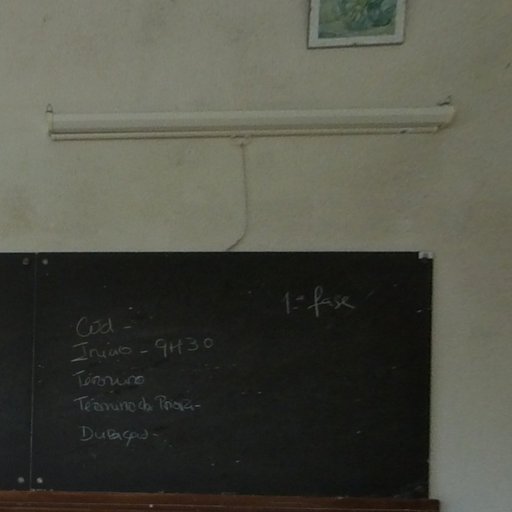 1.ª fase
Cód -
Início - 9H30
Término
Término da Prova -
Duração -